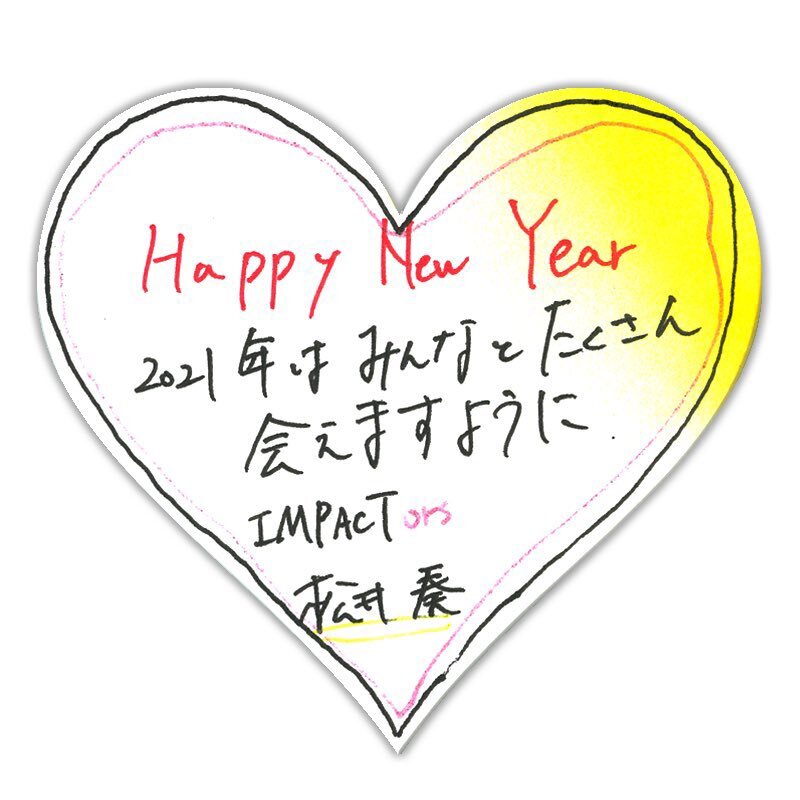 Happy New Year
2021年はみんなとたくさん
会えますように
IMPACTors
松井奏